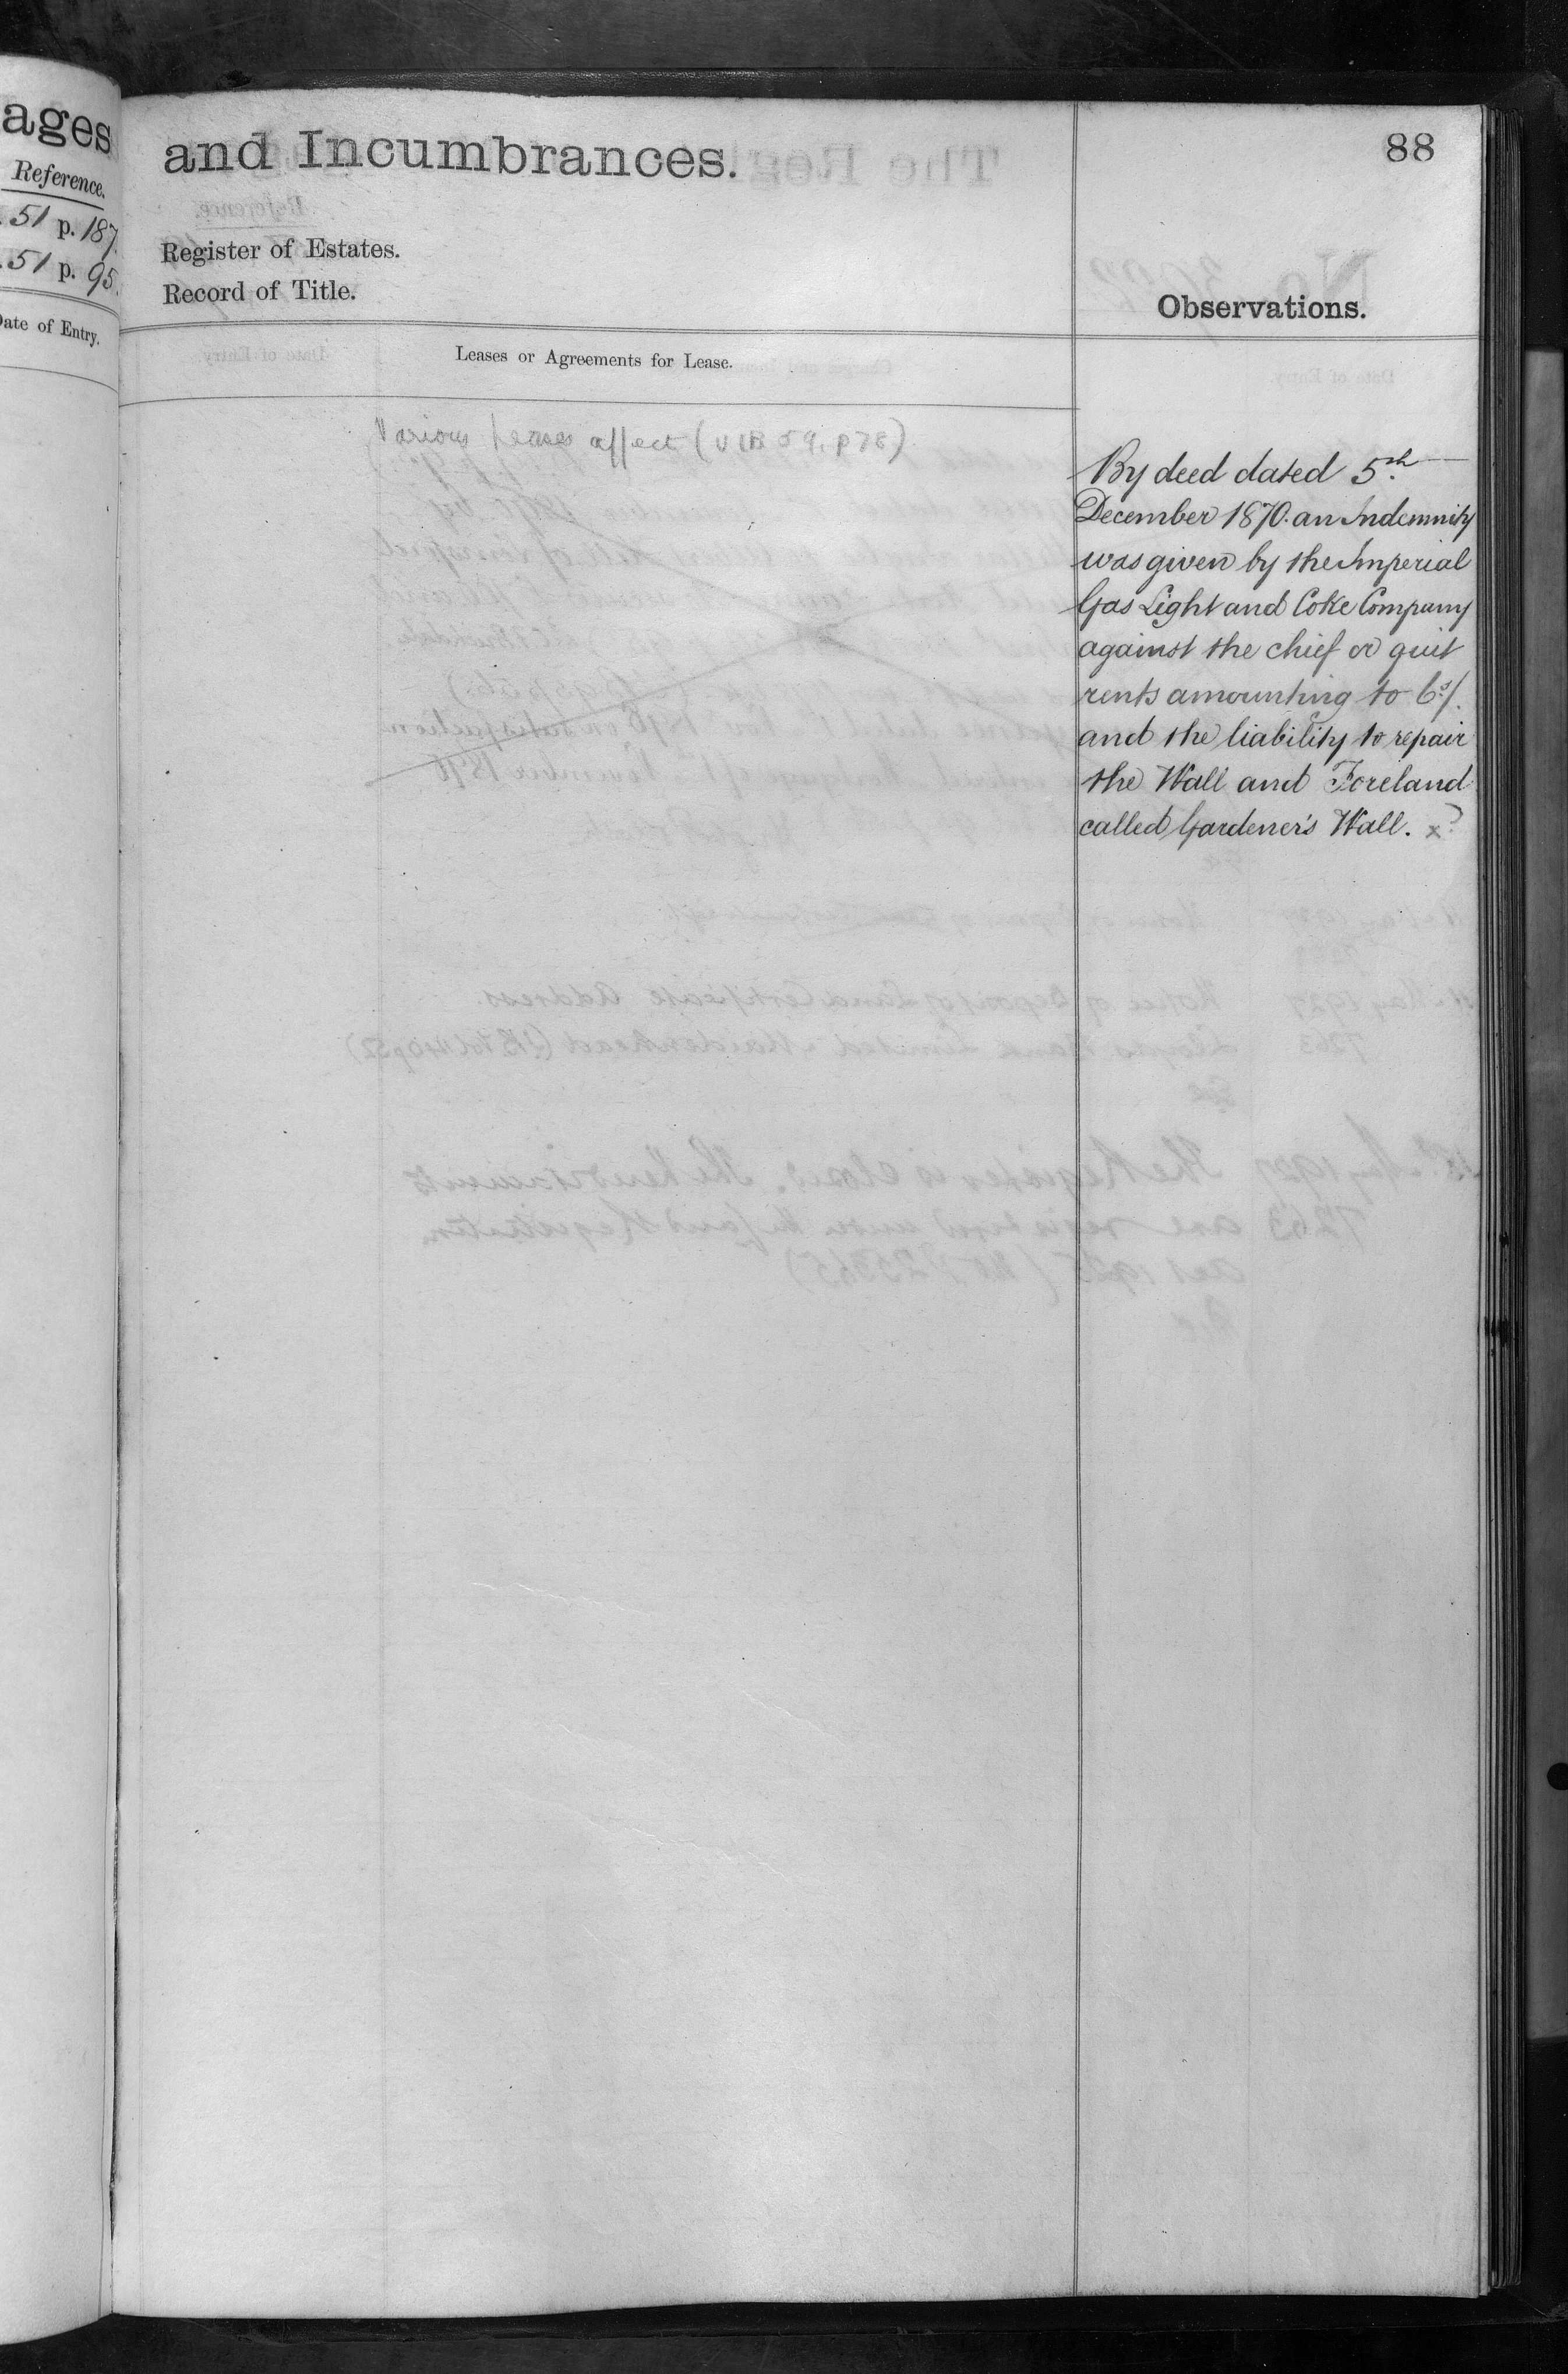 ages
Reference.
51 p. 187.
51 p. 95.
Date of Entry.
and Incumbrances.
88
Register of Estates.
Record of Title.
Observations.
Leases or Agreements for Lease.
Various leases affect (V IB 59. p 78)
By deed dated 5th
December 1870. an Indemnity
was given by the Imperial
Gas Light and Coke Company
against the chief or quit
rents amounting to 6s/.
and the liability to repair
the Wall and Foreland
called Gardener's Wall. x?